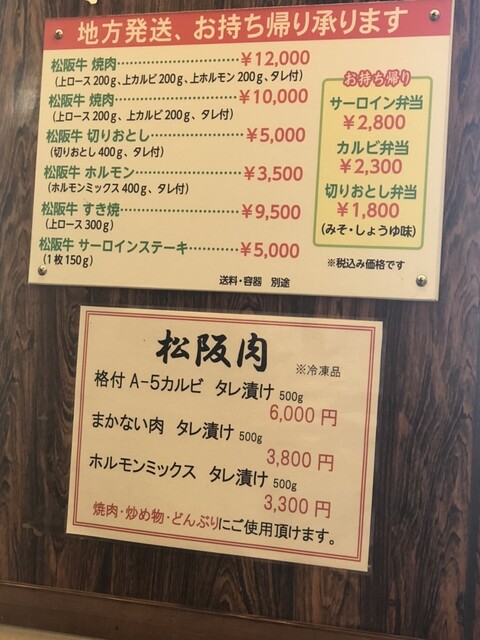 地方発送、お持ち帰り承ります
松阪牛 焼肉……………………¥12,000
(上ロース200g、上カルビ200g、上ホルモン200g、タレ付)
松阪牛 焼肉……………………¥10,000
(上ロース200g、上カルビ200g、タレ付)
松阪牛 切りおとし……………¥5,000
(切りおとし400g、タレ付)
松阪牛 ホルモン………………¥3,500
(ホルモンミックス400g、タレ付)
松阪牛 すき焼…………………¥9,500
(上ロース300g)
松阪牛 サーロインステーキ………¥5,000
(1枚150g)
お持ち帰り
サーロイン弁当
¥2,800
カルビ弁当
¥2,300
切りおとし弁当
¥1,800
(みそ・しょうゆ味)
※税込み価格です
送料・容器 別途
松阪肉
※冷凍品
格付 A-5カルビ タレ漬け 500g
6,000 円
まかない肉 タレ漬け 500g
3,800 円
ホルモンミックス タレ漬け 500g
3,300 円
焼肉・炒め物・どんぶりにご使用頂けます。